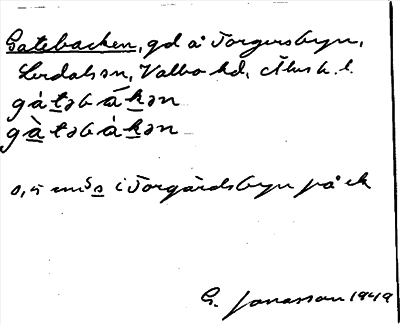 Gatebacken, gd å Torgersbyn,
Lerdals sn, Valbo hd, Älvsb. l.
gátəbákən
gàtəbákən
0,5 s i Torgärdsbyn på ek
G. Jonasson 1949